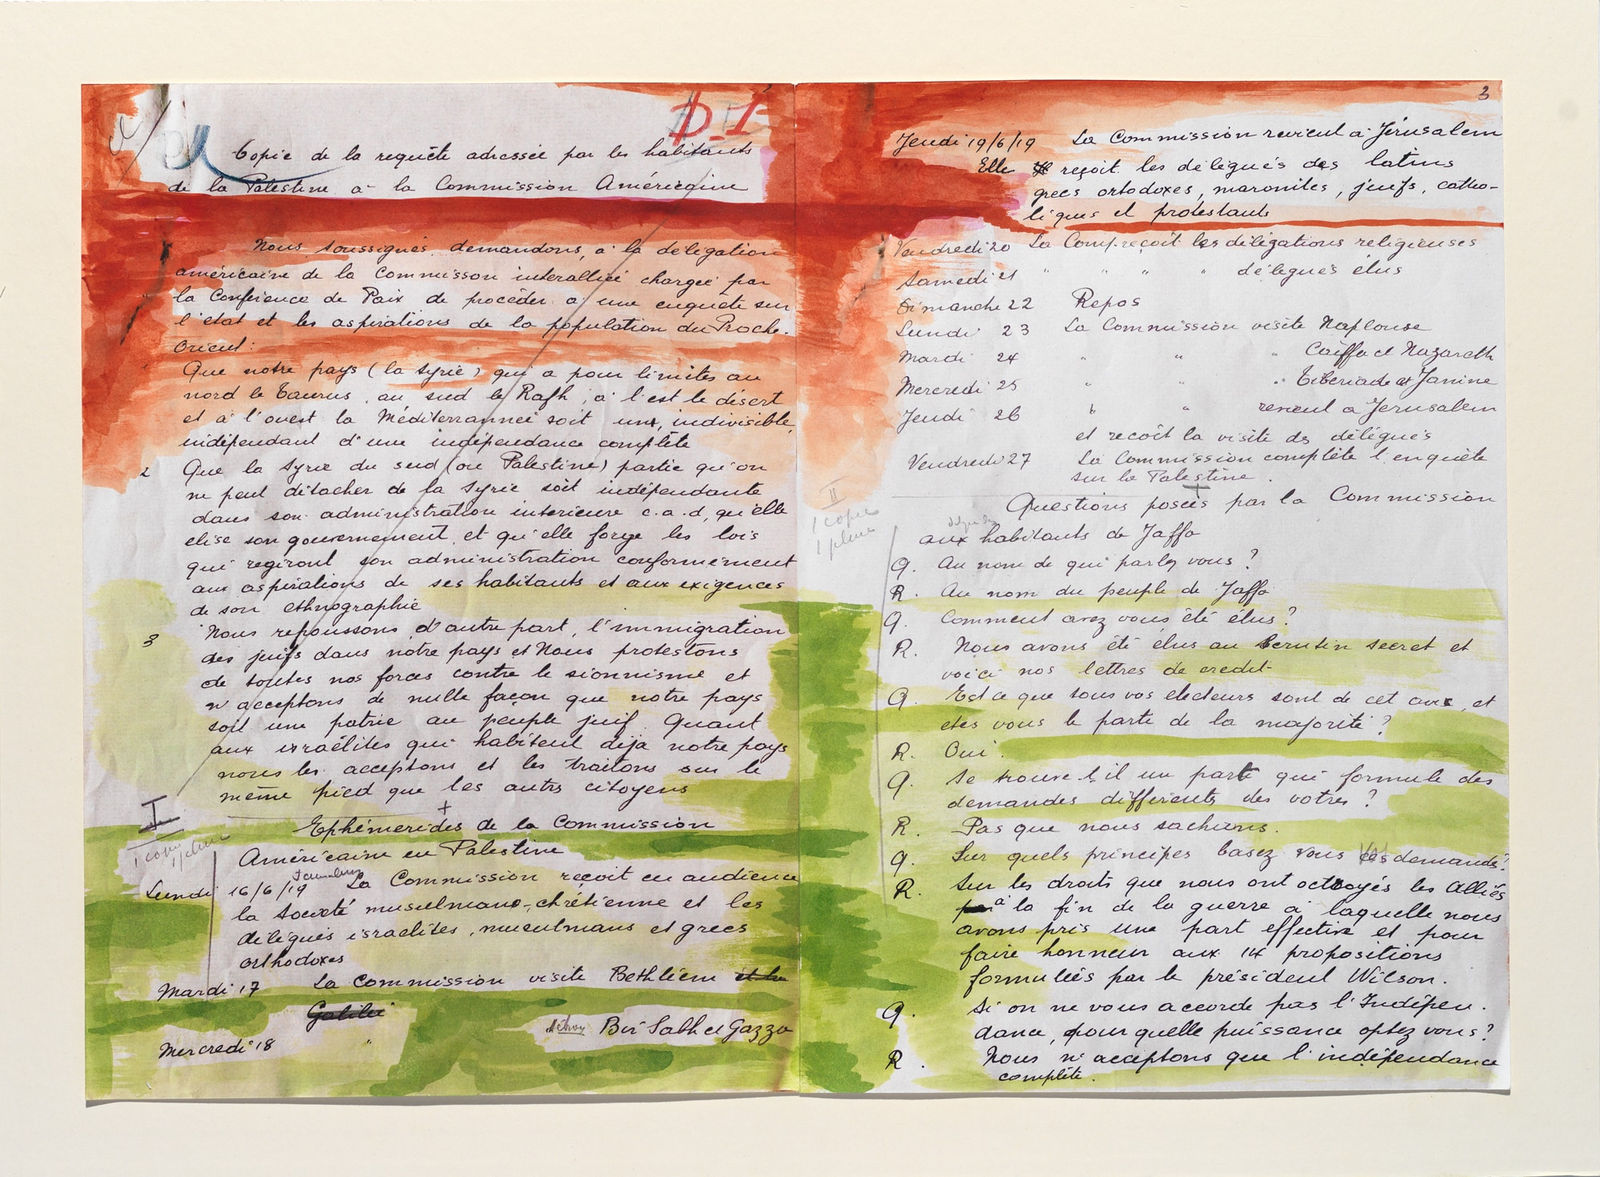 D.1
Copie de la requête adressée par les habitants
de la Palestine à la Commission Américaine
Nous soussignés demandons, à la délégation
américaine de la Commisson interalliée chargée par
la Conférence de Paix de procéder à une enquête sur
l'état et les aspirations de la population du Proche-
Orient:
Que notre pays (la Syrie) qui a pour limites au
nord le Taurus, au sud le Rafh, à l'est le désert
et à l'ouest la Méditerrannée soit un, indivisible,
indépendant d'une indépendance complète
2 Que la Syrie du sud (ou Palestine) partie qu'on
ne peut détacher de la Syrie soit indépendante
dans son administration interieure c.a.d, qu'elle
elise son gouvernement, et qu'elle forge les lois
qui regiront son administration conformément
aux aspirations de ses habitants et aux exigences
de son ethnographie
3 Nous repoussons, d'autre part, l'immigration
des juifs dans notre pays et Nous protestons
de toutes nos forces contre le sionnisme et
n'acceptons de nulle façon que notre pays
soit une patrie au peuple juif. Quant
aux israélites qui habitent déja notre pays
nous les acceptons et les traitons sur le
même pied que les autrs citoyens
I
1 copie
Ephémerides de la Commission
Américaine en Palestine
Lundi 16/6/19 La Commission reçoit en audience
la société musulmano-chrétienne et les
délégués israelites, musulmans et grecs
orthodoxes
Mardi 17 La Commission visite Bethléem et la
Galilée
Mercredi 18 " Bir Sabh et Gazza
3
Jeudi 19/6/19 La Commission revient à Jérusalem
Elle reçoit les délégués des latins
grecs ortodoxes, maronites, juifs, catho-
liques et protestants
Vendredi 20 La Com. reçoit les délégations religieuses
Samedi 21 " " " " délégués élus
Dimanche 22 Repos
Lundi 23 La Commission visite Naplouse
Mardi 24 " " " Caïffa et Nazareth
Mercredi 25 " " " Tibériade et Janine
Jeudi 26 " " revient a Jerusalem
et recoît la visite ds délégués
Vendredi 27 La Commission complète l'enquête
sur la Palestine.
II
1 copie
Questions posées par la Commission
aux habitants de Jaffa
Q. Au nom de qui parlez vous?
R. Au nom du peuple de Jaffa
Q. Comment avez vous été élus?
R. Nous avons été élus au Scrutin secret et
voici nos lettres de credit-
Q Est ce que tous vos electeurs sont de cet avis, et
etes vous le parte de la majorité?
R. Oui.
Q. Se trouve-t-il un parte qui formule des
demandes differents des votres?
R. Pas que nous sachions.
Q. Sur quels principes basez vous vos demande?
R. Sur les droits que nous ont octroyés les Alliés
à la fin de la guerre à laquelle nous
avons pris une part effective et pour
faire honneur aux 14 propositions
formulées par le président Wilson.
Q. Si on ne vous accorde pas l'Indépen-
dance, pour quelle puissance optez vous?
R. Nous n'acceptons que l'indépendance
complète.